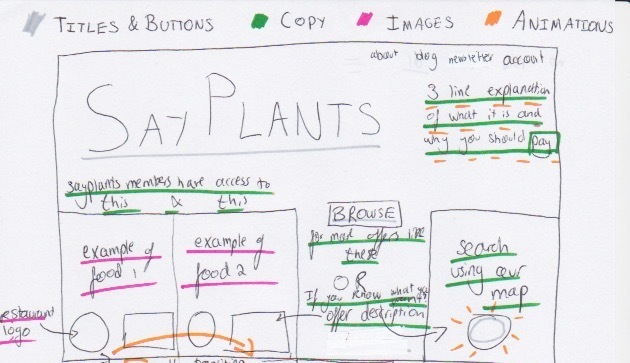 TITLES & BUTTONS COPY IMAGES ANIMATIONS
about blog newsletter account
SAY PLANTS
3 line explanation
of what it is and
why you should pay
sayplants members have access to
this & this
example of
food 1
example of
food 2
BROWSE
for more offers like
these
OR
If you know what you
want
offer description
search
using our
map
restaurant
logo